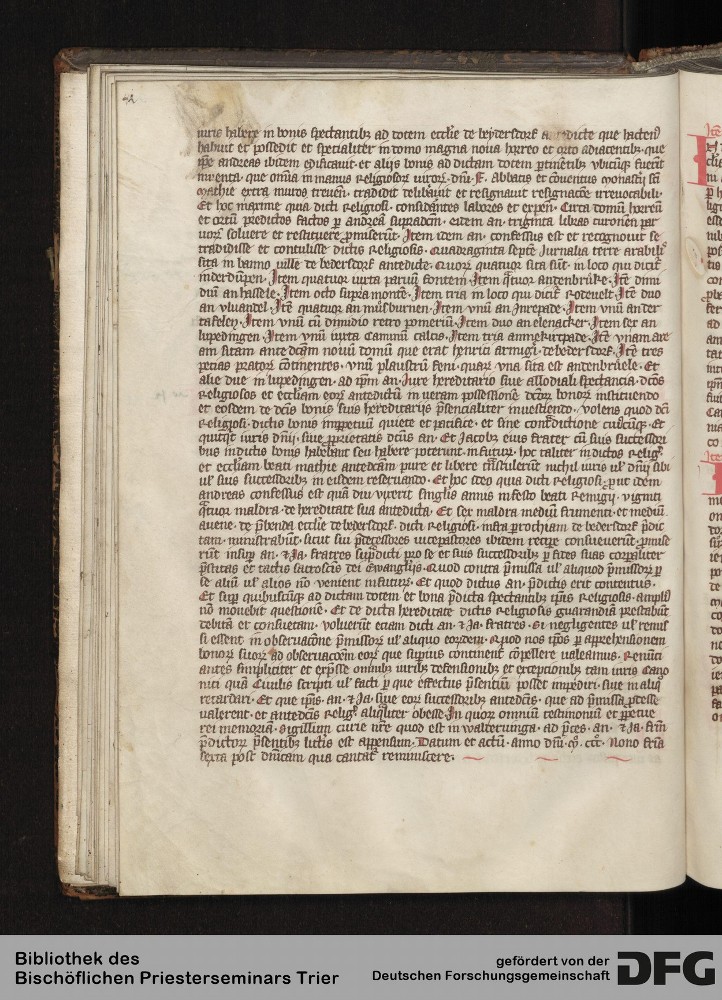 iuris habere in bonis spectantibꝫ ad dotem ecclie de beydersdorf que hacten9
habuit et possedit et specialiter in domo magna noua horreo et orto adiacentibꝫ que
ipe andreas ibidem edificauit et alijs bonis ad dictam dotem ptinētibꝫ vbicūqꝫ fuerīt
inuenta que om̄ia in manus religiosoꝝ viroꝝ dn̄i abbatis et cōuentus monasterij
mathie extra muros treueñ tradidit delibauit et resignauit resignacōe irreuocabili
Et hoc maxime quia dicti religiosi considerātes labores et expen̄ Circa domū horreū
et ortū predictos factos ꝑ andreā supradcm̄ eidem an triginta libras turonen̄ par
uoꝝ soluere et restituere ꝓmiserūt Item idem an confessus est et recognouit se
tradidisse et contulisse dictis religiosis Quadraginta septē Jurnalia terre arabiƚ
sita in banno ville de bedersdorf antedicte Quoꝝ quatuor sita sūt in loco qui dicit̄
inderdūpen Item quatuor iuxta paruū fontem Item qͣtuor antenbrúke Itē dimi
diū an hassele Item octo supra monte Item tria in loco qui dicit̄ Rodeuelt Itē duo
an vluandel Itē quatuor an músburnen Item vnū an Inrepade Item vnū ander
tafeley Item vnū cū dimidio retro pomeriū Item duo an elenacker Item sex an
lupedingen Item vnū iuxta caminū calcis Item tria annekirepade Itē vnam are
am sitam ante dcām nouū domū que erat henrici armigi de bedersdorf Itē tres
petias pratoꝝ cōtinentes vnū plaustrū feni quaꝝ vna sita est antenbruele Et
alie due in lupedingen ad ipm̄ an Iure hereditario siue allodiali spectantia dcōs
religiosos et eccliam eoꝝ antedictū in ueram possessionē dcōꝝ bonoꝝ instituendo
et eosdem de dcīs bonis suis hereditarijs pn̄sencialiter inuestiendo volens quod dcī
religiosi dictis bonis impꝑetuū quiete et pacifice et sine cont̄dictione cuiuscūqꝫ Et
quicqͥd iuris dn̄ij siue ꝓprietatis dcūs an Et Jacobꝫ eius frater cū suis successori
bus in dictis bonis habebant seu habere poterunt in futuꝝ hoc taliter in dictos religꝰ
et eccliam beati mathie antedcām pure et libere trāstulerūt nichil iuris uƚ dn̄ij sibi
uƚ suis successoribꝫ in eisdem reseruando Et hoc ideo quia dicti religiosi ꝓut idem
andreas confessus est quā diu vixerit singƚis annis in festo beati Remigij viginti
qͣtuor maldra de hereditate sua antedicta Et sex maldra mediū frumenti et mediū
auene de pb̄enda ecclie de bedersdorf dicti religiosi infra ꝑrochiam de bedersdorf pdic
tam ministrabūt sicut sui pdecessores vicepastores ibidem recipe consueuerūt ꝓmise
rūt insuꝑ an ⁊ Ja fratres suꝑdicti pro se et suis successoribꝫ ꝑ fides suas corꝑaliter
pstitas et tactis sacrosctīs dei ewangelijs Quod contra pmissa uƚ aliquod pmissoꝝ ꝑ
se aliū uƚ alios nō venient in futuꝝ Et quod dictus an pdictis erit contentus
Et suꝑ quibuscūqꝫ ad dictam dotem et bona pdicta spectantibꝫ ipīs religiosis ampliꝰ
nō mouebit questionē Et de dicta hereditate dictis religiosis guarandiā prestabūt
debitā et consuetam voluerūt etiam dicti an ⁊ Ja fratres si negligentes uƚ remissi
si essent in obseruacōne pmissoꝝ uƚ aliquo eoꝝdem Quod nos ipōs ꝑ apprehensionem
bonoꝝ suoꝝ ad obseruacōem eoꝝ que supius continent̄ cōpellere ualeamus Renūci
antes simpliciter et expsse omnibꝫ iuribꝫ defensionibꝫ et exceptionibꝫ tam iuris Cano
nici quā Ciuilis scripti uƚ facti ꝑ que effectus pn̄sentiū posset impediri siue in aliqͦ
retardari Et que ipīs an ⁊ Ja siue eoꝝ successoribꝫ antedcīs que ad pmissa ꝓdesse
ualerent et antedcīs religꝰ aliqͣliter obesse In quoꝝ omniū testimoniū et ꝑpetue
rei memoriā Sigillum curie nr̄e quod est in waldeuinga ad pces an ⁊ Ja frm̄
pdictoꝝ pn̄sentibꝫ litteris est appensum Datum et actū anno dn̄i mͦ cccͦ Nono feria
sexta post dn̄icam qua cantat̄ reminiscere
Bibliothek des
Bischöflichen Priesterseminars Trier
gefördert von der
Deutschen Forschungsgemeinschaft
DFG